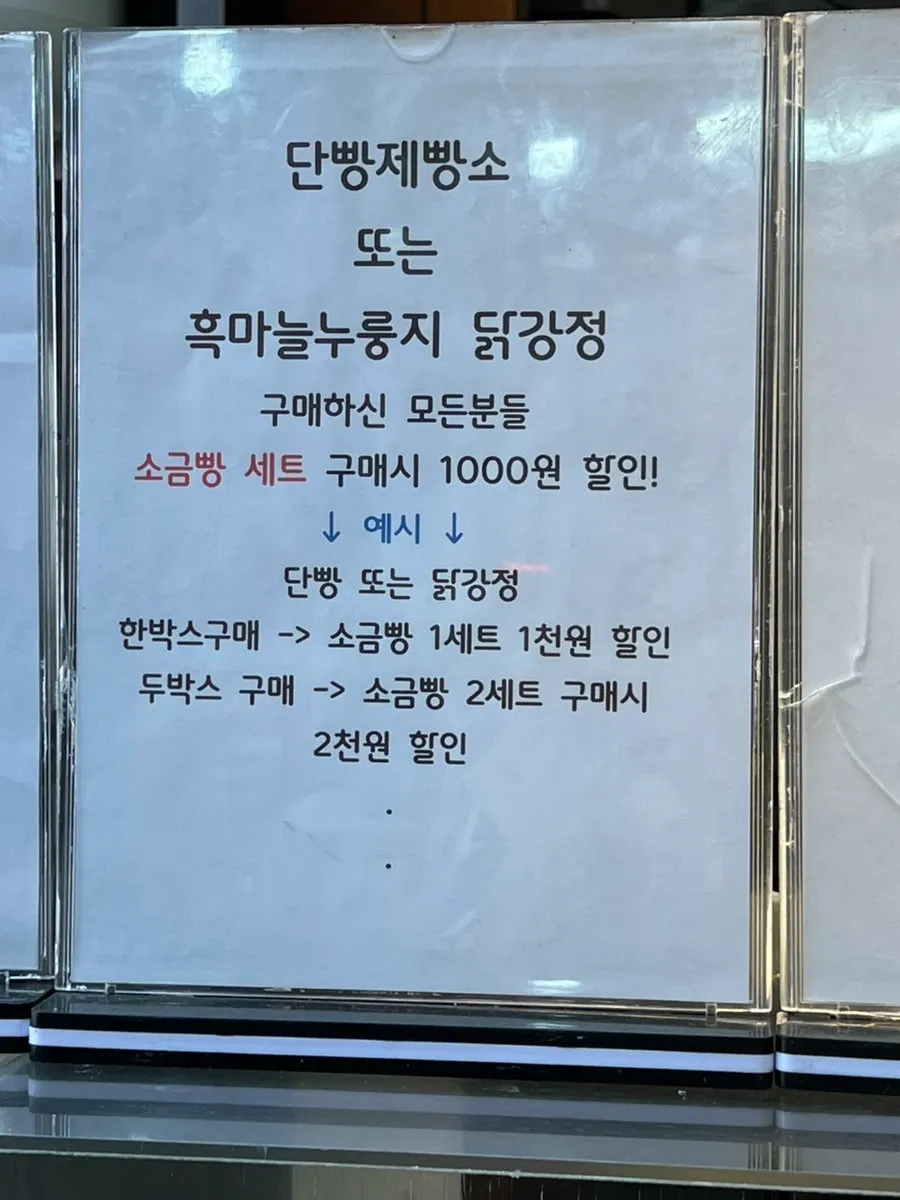 단빵제빵소
또는
흑마늘누룽지 닭강정
구매하신 모든분들
소금빵 세트 구매시 1000원 할인!
↓ 예시 ↓
단빵 또는 닭강정
한박스구매 -> 소금빵 1세트 1천원 할인
두박스 구매 -> 소금빵 2세트 구매시
2천원 할인
.
.